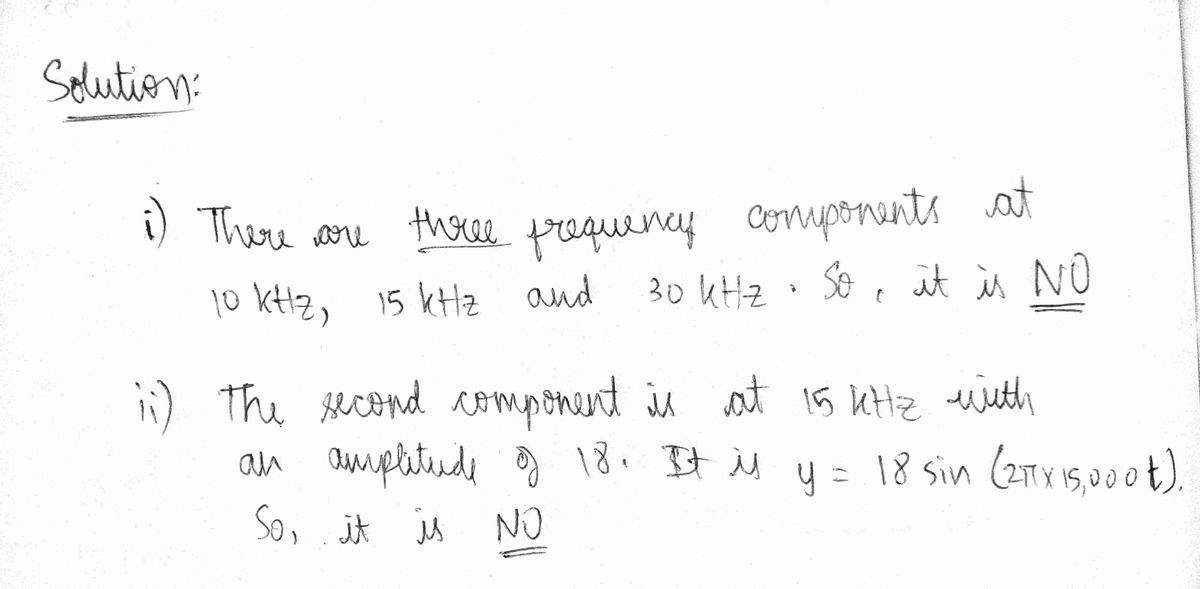 Solution:
i) There are three frequency components at
10 kHz, 15 kHz and 30 kHz. So, it is NO
ii) The second component is at 15 kHz with
an amplitude of 18. It is y = 18 sin (2π x 15,000t).
So, it is NO